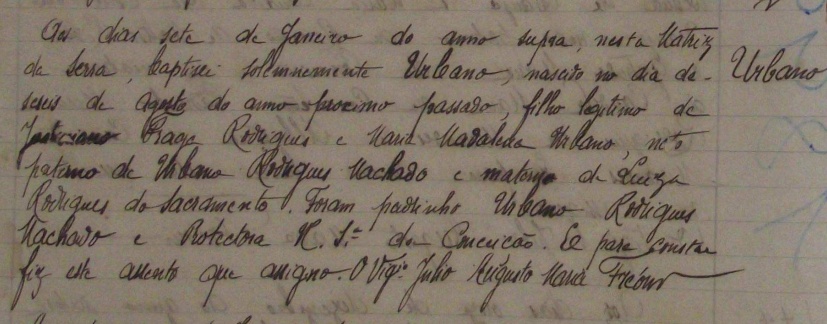 Aos dias sete de Janeiro do anno supra, nesta Matriz
da Serra, baptisei solemnemente Urbano, nascido no dia de- Urbano
seseis de Agosto do anno proximo passado, filho legitimo de
Braga Rodrigues e Maria Madalena Urbano, neto
paterno de Urbano Rodrigues Machado e materno de Luiza
Rodrigues do Sacramento. Foram padrinho Urbano Rodrigues
Machado e Protectora N. Sª da Conceição. E para constar
fiz este assento que assigno. O Vigº Julio Augusto Maria